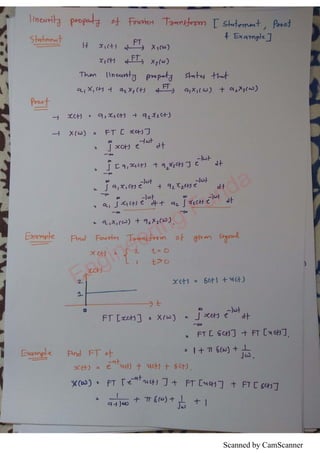 linearity propaty of Fourier Transform [ Statement, Proof
& Example ]
Statement
If x₁(t) ⟷FT X₁(ω)
x₂(t) ⟷FT X₂(ω)
Then linearity propaty states that
a₁x₁(t) + a₂x₂(t) ⟷FT a₁X₁(ω) + a₂X₂(ω)
Proof
→ x(t) = a₁x₁(t) + a₂x₂(t)
→ X(ω) = FT [ x(t) ]
= ∫_{-∞}^{∞} x(t) e^{-jωt} dt
= ∫_{-∞}^{∞} [ a₁x₁(t) + a₂x₂(t) ] e^{-jωt} dt
= ∫_{-∞}^{∞} a₁x₁(t) e^{-jωt} + a₂x₂(t) e^{-jωt} dt
= a₁ ∫_{-∞}^{∞} x₁(t) e^{-jωt} dt + a₂ ∫_{-∞}^{∞} x₂(t) e^{-jωt} dt
= a₁X₁(ω) + a₂X₂(ω)
Example Find Fourier Transform of given signal
x(t) = { 2 t=0
1 t>0
x(t)
2
1
0
t
x(t) = δ(t) + u(t)
FT [x(t)] = X(ω) = ∫_{-∞}^{∞} x(t) e^{-jωt} dt
= FT [ δ(t) ] + FT [ u(t) ].
= 1 + π δ(ω) + 1/jω.
Example Find FT of
x(t) = e^{-at} u(t) + u(t) + δ(t).
X(ω) = FT [ e^{-at} u(t) ] + FT [ u(t) ] + FT [ δ(t) ]
= 1/(a+jω) + π δ(ω) + 1/jω + 1
Scanned by CamScanner